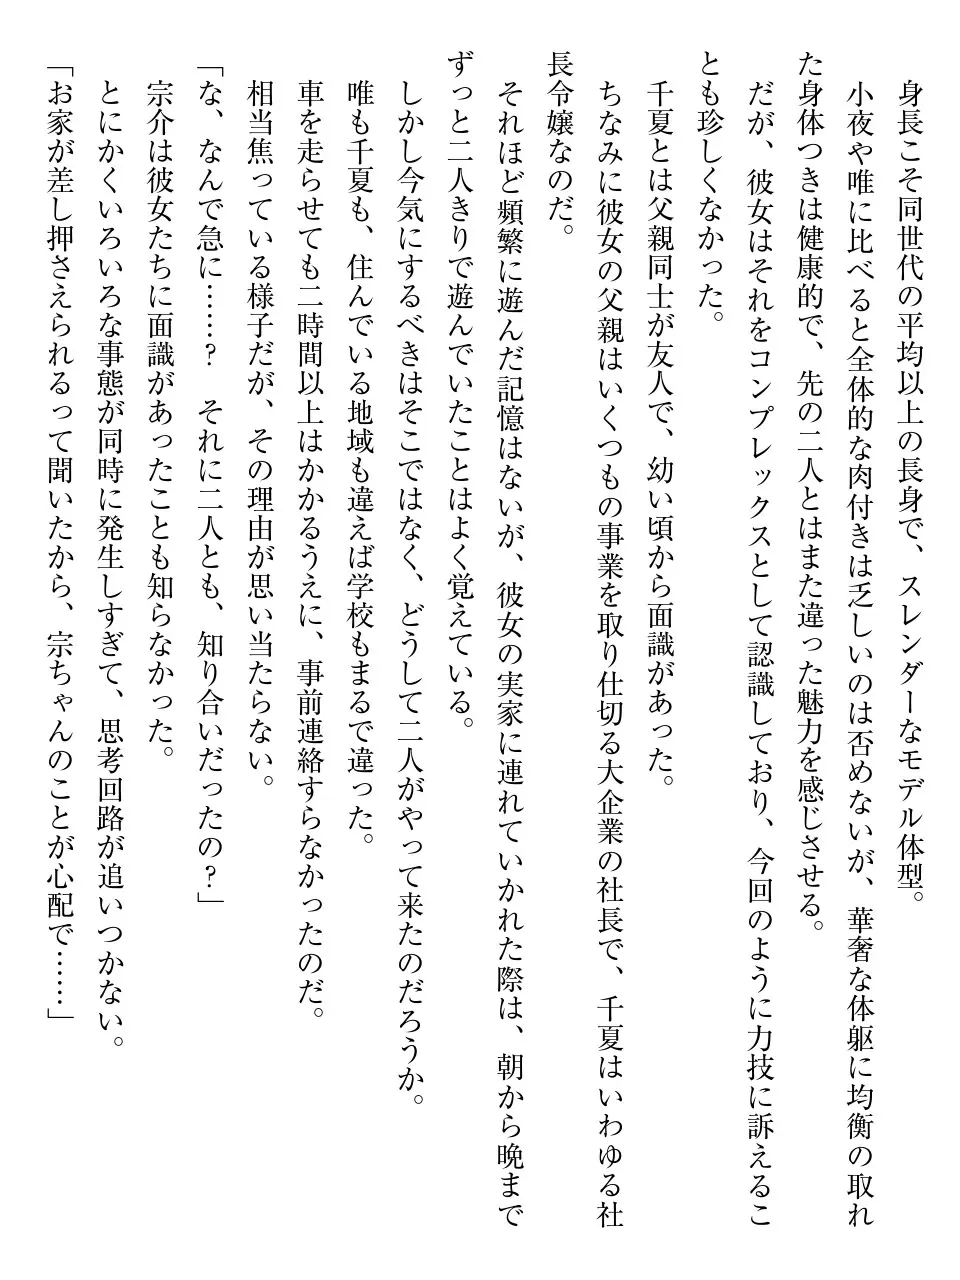 身長こそ同世代の平均以上の長身で、スレンダーなモデル体型。
小夜や唯に比べると全体的な肉付きは乏しいのは否めないが、華奢な体躯に均衡の取れ
た身体つきは健康的で、先の二人とはまた違った魅力を感じさせる。
だが、彼女はそれをコンプレックスとして認識しており、今回のように力技に訴えるこ
とも珍しくなかった。
千夏とは父親同士が友人で、幼い頃から面識があった。
ちなみに彼女の父親はいくつもの事業を取り仕切る大企業の社長で、千夏はいわゆる社
長令嬢なのだ。
それほど頻繁に遊んだ記憶はないが、彼女の実家に連れていかれた際は、朝から晩まで
ずっと二人きりで遊んでいたことはよく覚えている。
しかし今気にするべきはそこではなく、どうして二人がやって来たのだろうか。
唯も千夏も、住んでいる地域も違えば学校もまるで違った。
車を走らせても二時間以上はかかるうえに、事前連絡すらなかったのだ。
相当焦っている様子だが、その理由が思い当たらない。
「な、なんで急に……？　それに二人とも、知り合いだったの？」
宗介は彼女たちに面識があったことも知らなかった。
とにかくいろいろな事態が同時に発生しすぎて、思考回路が追いつかない。
「お家が差し押さえられるって聞いたから、宗ちゃんのことが心配で……」